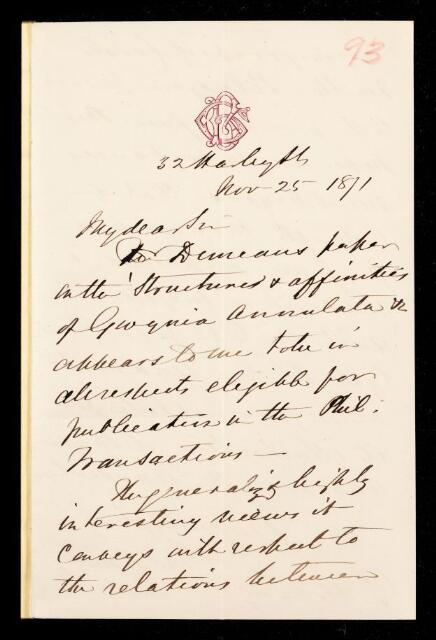 93
32 Harley St
Nov 25 1871
My dear Sir
Dr Duncan's paper
on the 'Structures & affinities
of Gwynia Annulata &c
appears to me to be in
all respects eligible for
publication in the Phil:
Transactions —
The generally highly
interesting views it
Conveys with respect to
the relations between